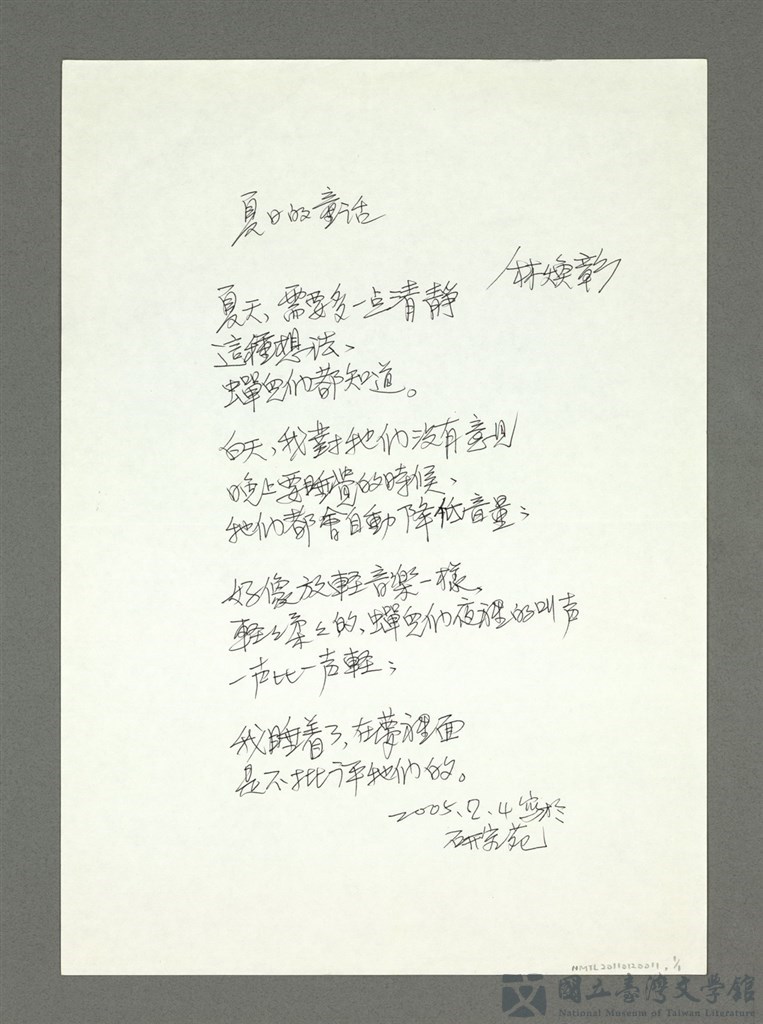 夏日的童话
林煥彰
夏天，需要多一点清静
這種想法、
蟬兒们都知道。
白天，我對牠们没有意見
晚上要睡覺的時候、
牠们都會自動降低音量；
好像放輕音樂一樣，
軽々柔々的，蟬兒们夜裡的叫声
一声比一声軽；
我睡着了，在夢裡面
是不批评牠们的。
2005.7.4寫於
研究苑
NMTL20110120011，1/1
國立臺灣文學館
National Museum of Taiwan Literature